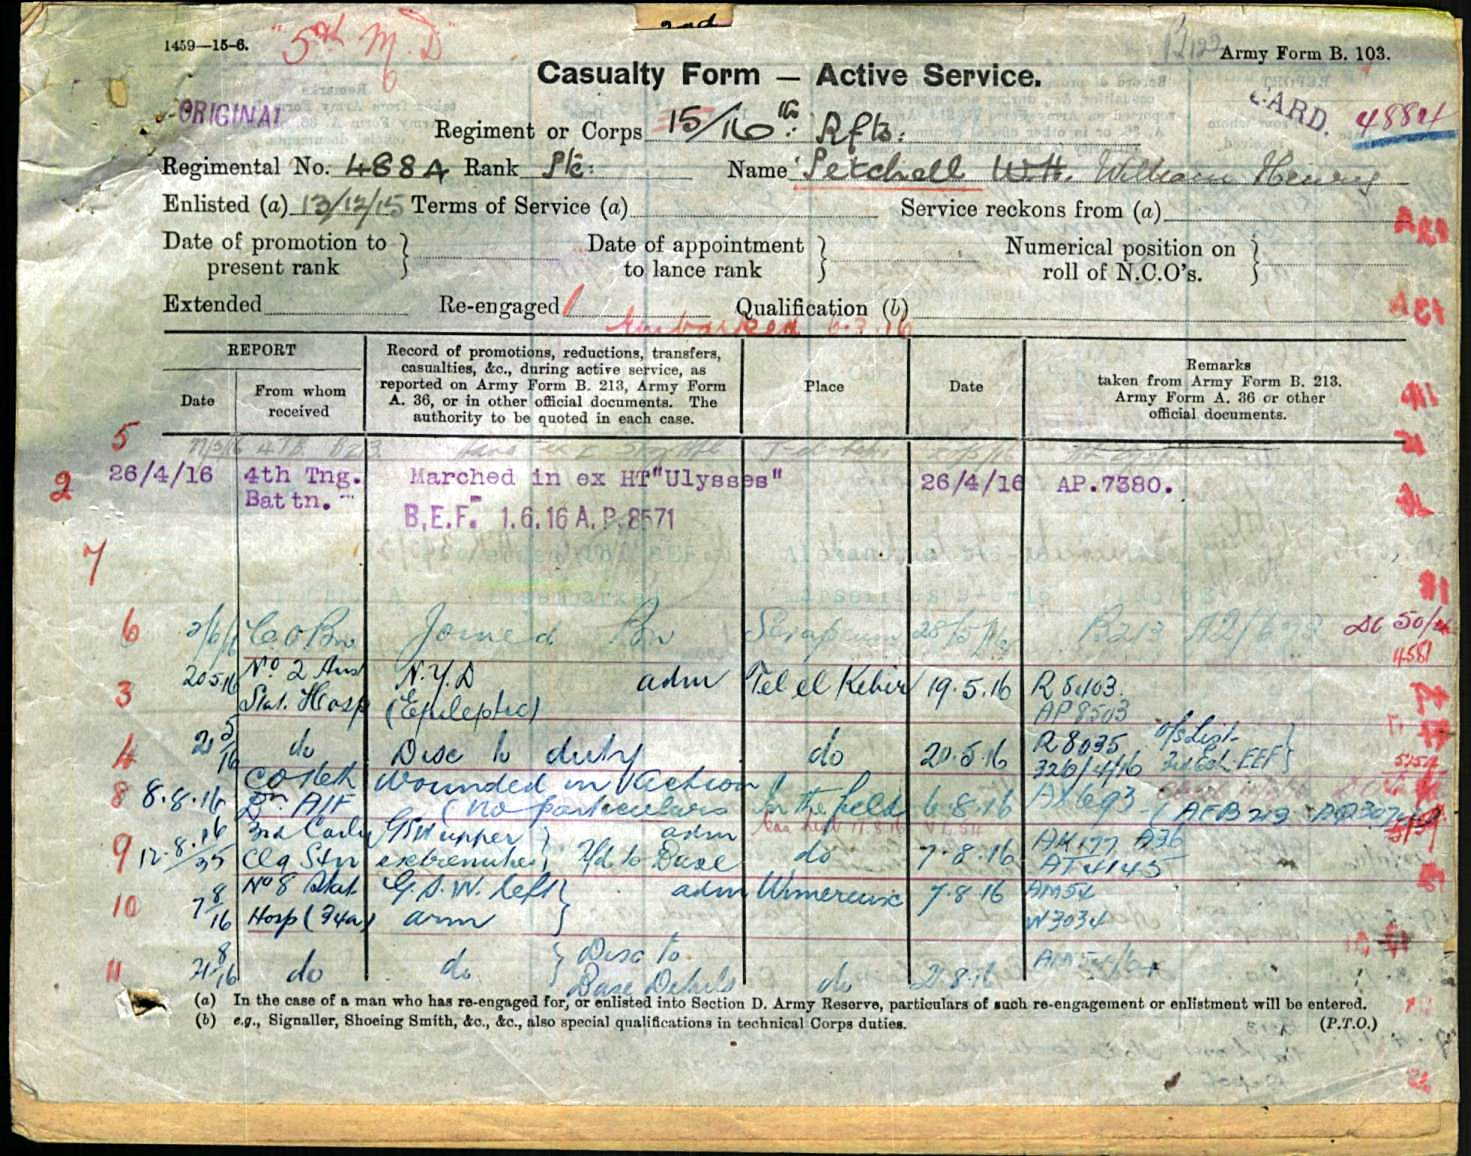 2nd
1459—15-6.
"5th M.D"
Army Form B. 103.
Casualty Form — Active Service.
ORIGINAL
CARD.
4884
Regiment or Corps 15/16th: Rfts:
Regimental No. 488A Rank Pte: Name Petchell W.H. William Henry
Enlisted (a) 13/12/15 Terms of Service (a) Service reckons from (a)
Date of promotion to present rank } Date of appointment to lance rank } Numerical position on roll of N.C.O's. }
Extended Re-engaged Qualification (b)
Embarked 6.3.16
REPORT
Date
From whom received
Record of promotions, reductions, transfers, casualties, &c., during active service, as reported on Army Form B. 213, Army Form A. 36, or in other official documents. The authority to be quoted in each case.
Place
Date
Remarks taken from Army Form B. 213. Army Form A. 36 or other official documents.
5
2 26/4/16 4th Tng. Battn. Marched in ex HT"Ulysses" 26/4/16 AP.7380.
B.E.F. 1.6.16 A.P.8571
7
6 2/6/16 C.O. Bn Joined Bn Serapeum 28/5/16 B213
3 20.5.16 No 2 Aus Stat. Hosp N.Y.D (Epileptic) adm Tel el Kebir 19.5.16 R 5403. AP 8503
4 do Disc to duty do 20.5.16 R 8035 326/4/16 o/s List 3rd Ech EEF }
8 8.8.16 Wounded in Action (No particulars In the field 6.8.16
9 12.8.16 3rd Caslty Clg Stn GSW upper extremities } adm Tfd to Base do 7.8.16 A36 AT4145
10 7/8/16 No 8 Stat Hosp G.S.W. left arm } adm Wimereux 7.8.16 AM54 W3034
11 21/8/16 do do } Disc to Base Details do 21.8.16
(a) In the case of a man who has re-engaged for, or enlisted into Section D. Army Reserve, particulars of such re-engagement or enlistment will be entered.
(b) e.g., Signaller, Shoeing Smith, &c., &c., also special qualifications in technical Corps duties.
(P.T.O.)